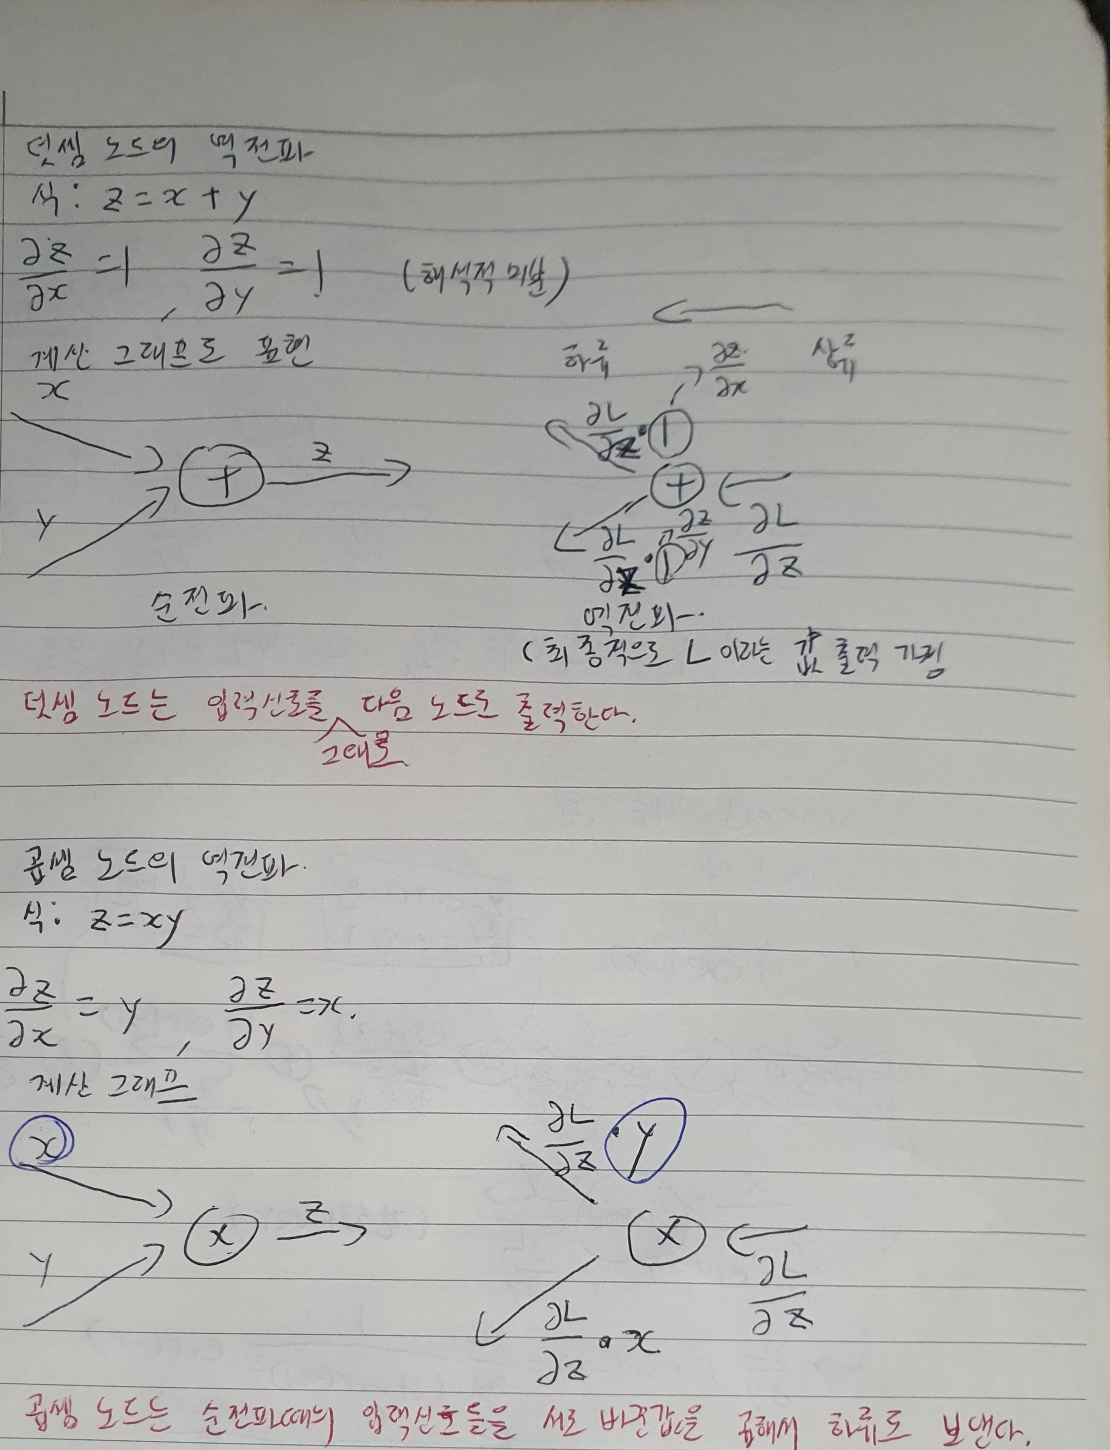 덧셈 노드의 역전파
식: z = x + y
∂z/∂x = 1, ∂z/∂y = 1 (해석적 미분)
계산 그래프로 표현
하류 ∂z/∂x 상류
x
∂L/∂z · 1
+ z
+
y
∂L/∂z · 1 ∂z/∂y ∂L/∂z
순전파.
역전파.
(최종적으로 L 이라는 값 출력 가정
덧셈 노드는 입력신호를 그대로 다음 노드로 출력한다.
곱셈 노드의 역전파.
식: z = xy
∂z/∂x = y, ∂z/∂y = x.
계산 그래프
x
∂L/∂z · y
x z
x
y
∂L/∂z
∂L/∂z · x
곱셈 노드는 순전파때의 입력신호들을 서로 바꾼값을 곱해서 하류로 보낸다.